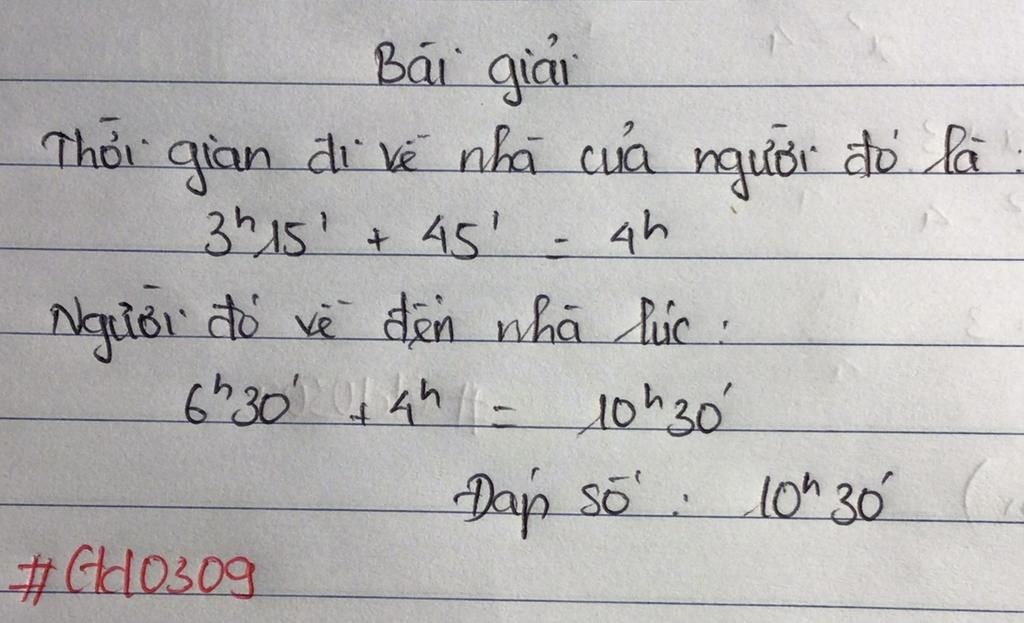 Bài giải
Thời gian đi về nhà của người đó là:
3h15' + 45' = 4h
Người đó về đến nhà lúc:
6h30' + 4h = 10h30'
Đáp số: 10h30'
#Gtd0309